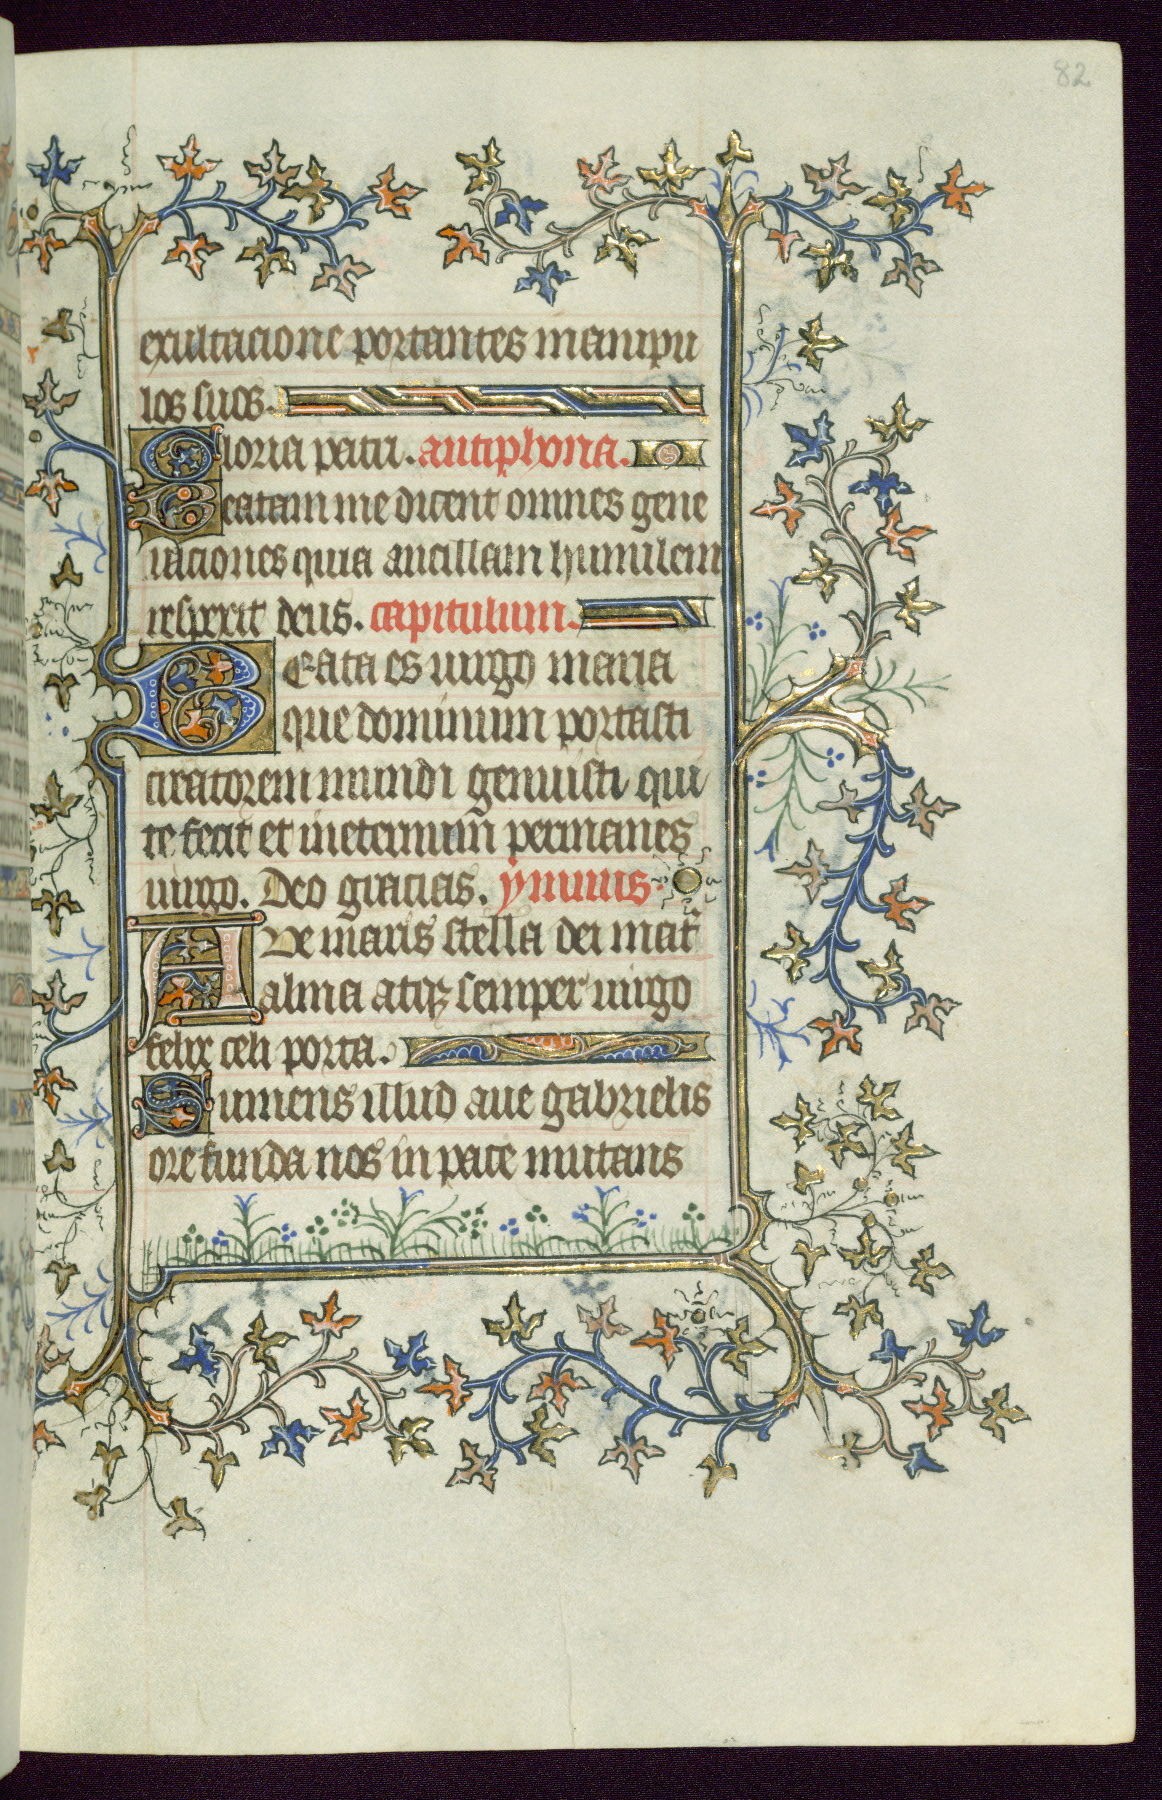 82
exultacione portantes manipu
los suos.
Gloria patri. antiphona.
Beatam me dicent omnes gene
raciones quia ancillam humilem
respexit deus. capitulum.
Beata es uirgo maria
que dominum portasti
creatorem mundi genuisti qui
te fecit et ineternum permanes
uirgo. Deo gracias. ymnus.
AVe maris stella dei mat̃r
alma atqꝫ semper uirgo
felix celi porta.
Sumens illud aue gabrielis
ore funda nos in pace mutans